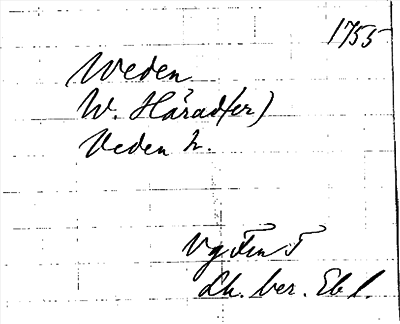 1755
Weden
W. Härad(er)
Veden h.
Vg Fm 5
Lh. ber. Eb 1.